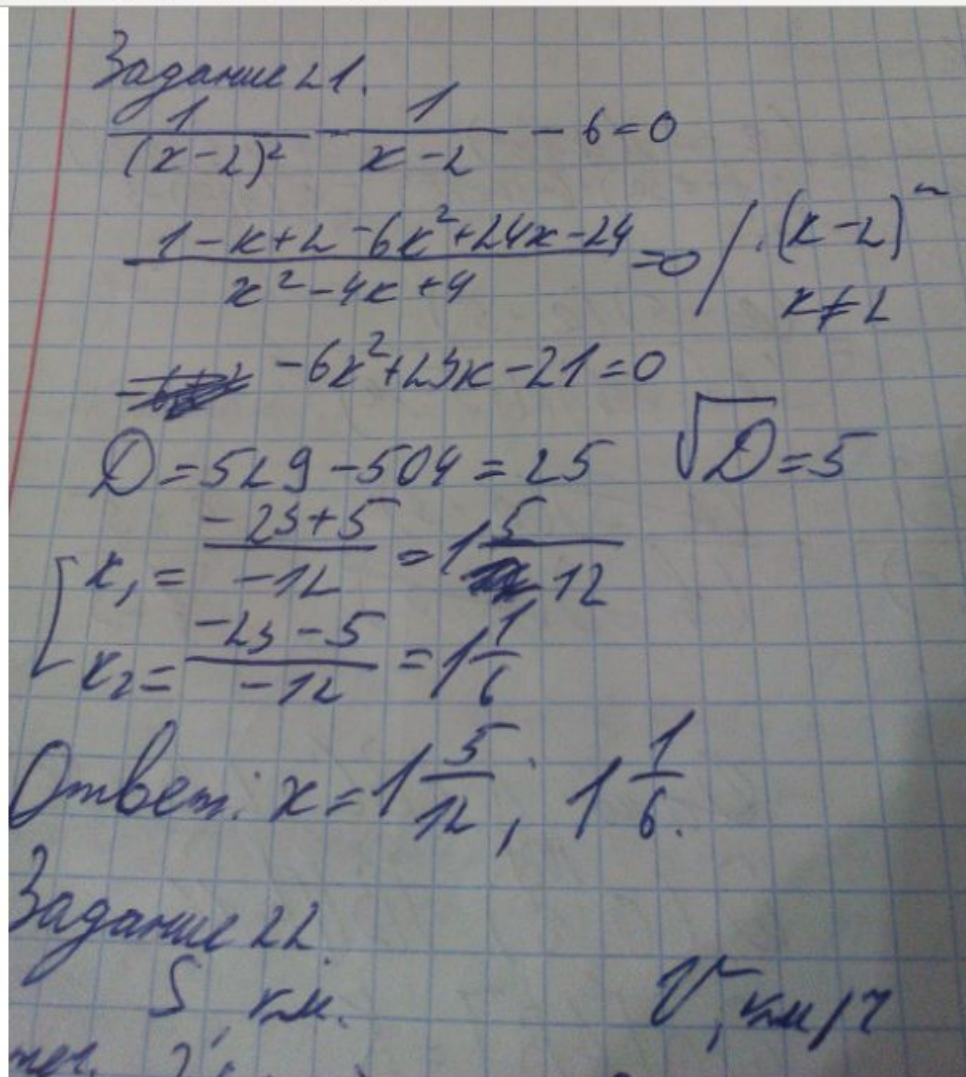 Задание 21.
1/(x-2)² - 1/(x-2) - 6 = 0
(1-x+2-6x²+24x-24)/(x²-4x+4) = 0 / ·(x-2)²
x≠2
-6x²+23x-21=0
D=529-504=25 √D=5
x₁= (-23+5)/(-12) = 1 5/12
x₂= (-23-5)/(-12) = 1 1/6
Ответ: x=1 5/12; 1 1/6.
Задание 22.
S, км. V, км/ч